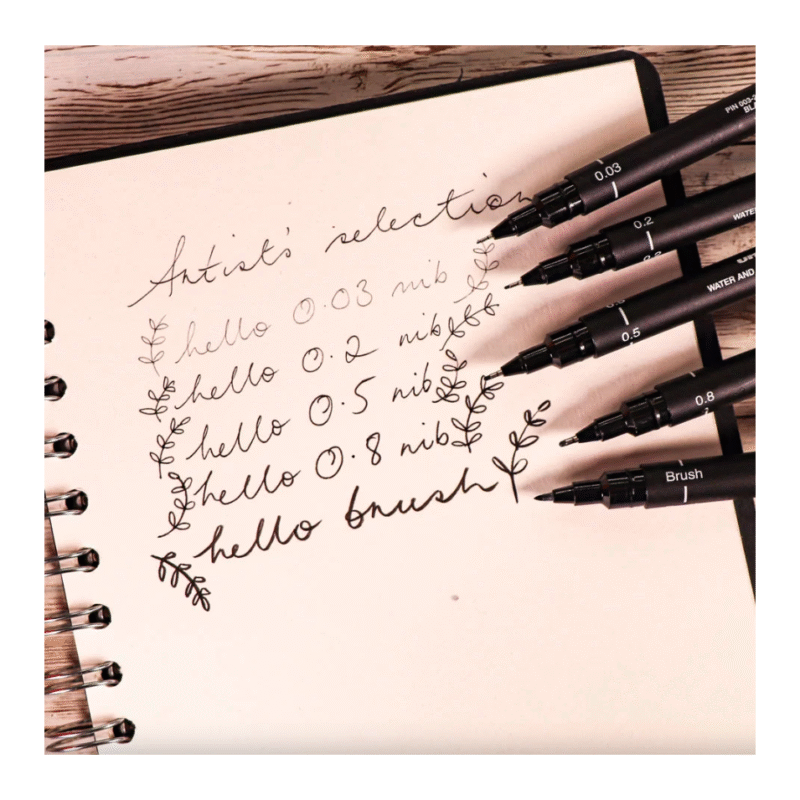 Artist's selection
hello 0.03 nib
hello 0.2 nib
hello 0.5 nib
hello 0.8 nib
hello brush
PIN 003-2
0.03
0.2
WATE
WATER AND
0.5
0.8
Brush